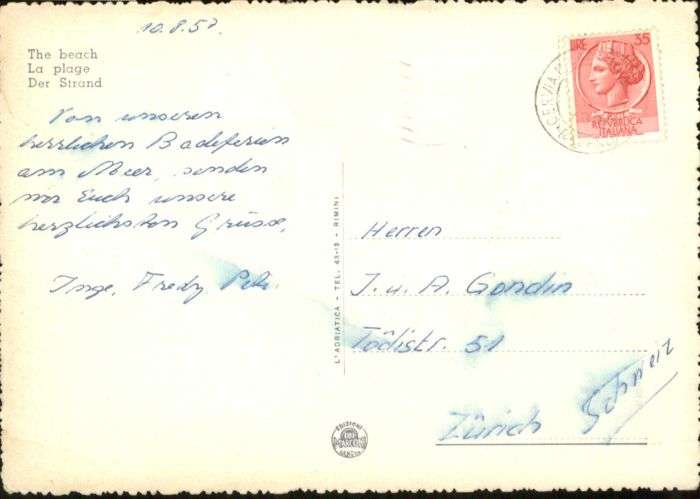 10.8.57.
The beach
La plage
Der Strand
Von unseren
herrlichen Badeferien
am Meer, senden
wir Euch unsere
herzlichsten Grüsse,
Inge, Fredy
LIRE 35
REPVBBLICA
ITALIANA
CERVIA
L'ADRIATICA - TEL. 43-13 - RIMINI
Herren
J. u. A. Gondin
Tödistr. 51
Zürich Schweiz
EDIZIONI